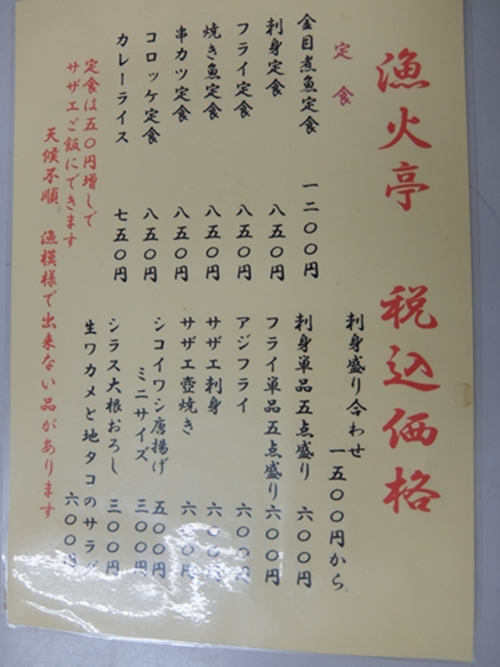 漁火亭 税込価格
定食
金目煮魚定食 一二〇〇円
刺身定食 八五〇円
フライ定食 八五〇円
焼き魚定食 八五〇円
串カツ定食 八五〇円
コロッケ定食 八五〇円
カレーライス 七五〇円
定食は五〇円増しで
サザエご飯にできます
天候不順、漁模様で出来ない品があります
刺身盛り合わせ
一五〇〇円から
刺身単品五点盛り 六〇〇円
フライ単品五点盛り 六〇〇円
アジフライ 六〇〇円
サザエ刺身 六〇〇円
サザエ壺焼き 六〇〇円
シコイワシ唐揚げ 五〇〇円
ミニサイズ 三〇〇円
シラス大根おろし 三〇〇円
生ワカメと地タコのサラダ
六〇〇円